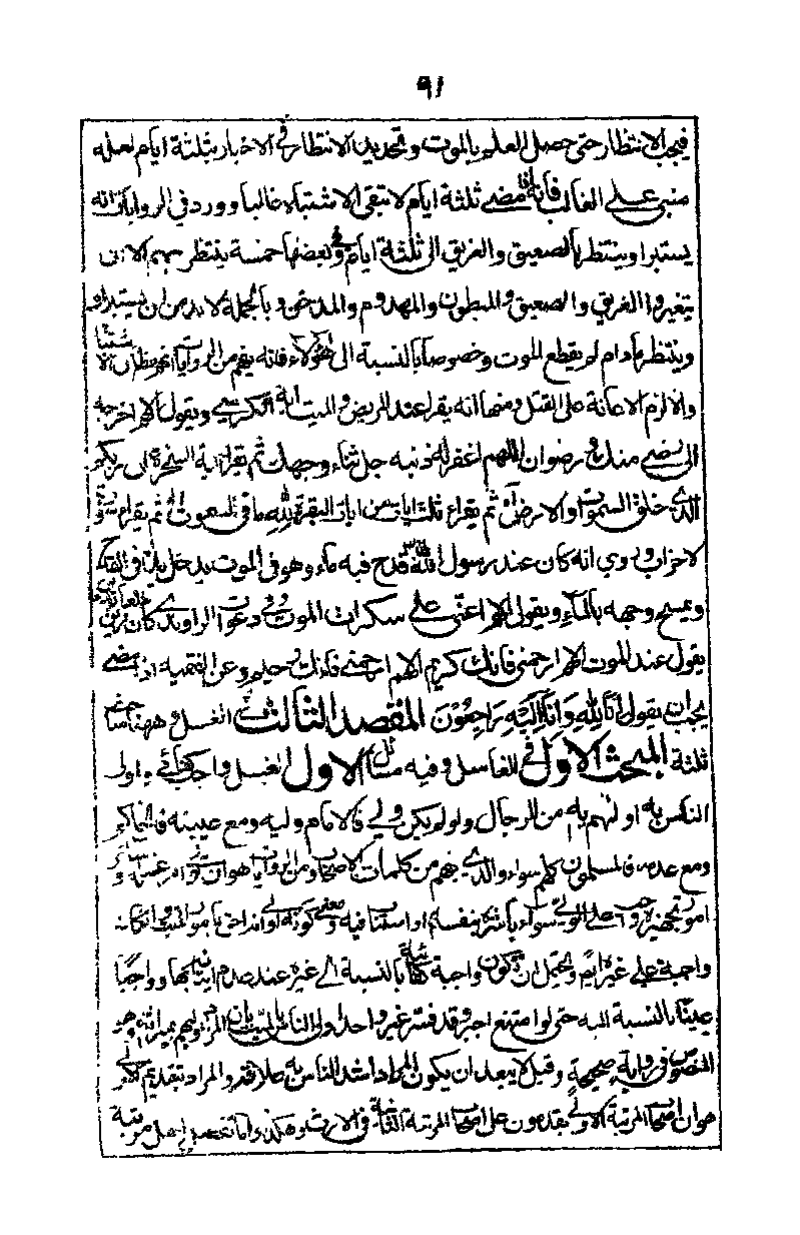 ٩١
فيجب الانتظار حتى حصل العلم بالموت وتحديد الانتظار في الاخبار بثلثة ايام لعله
مبنى على الغالب فانه اذا مضى ثلثة ايام لا تبقى الاشتباه غالبا وورد في الروايات انه
يستبرا وينتظر بالصعيق والغريق الى ثلثة ايام وفي بعضها خمسة ينتظر بهم الا ان
يتغيروا الغريق والصعيق والمبطون والمهدوم والمدخن وبالجملة لا بد من ان يستبرا
وينتظر مادام لم يقطع الموت وخصوصا بالنسبة الى هؤلاء فانه يفهم من الروايات انهم مظان الاشتباه
والا لزم الاعانة على القتل ومنها انه يقرا عند المريض والميت اية الكرسي ويقول اللهم اخرجه
الى رضى منك ورضوان اللهم اغفر له ذنبه جل ثناء وجهك ثم يقرا اية السخرة ان ربكم
الذي خلق السموات والارض ثم يقراء ثلث ايات من اخر البقرة لله ما في السموات ثم يقراء سورة
الاحزاب وروي انه كان عند رسول الله قدح فيه ماء وهو في الموت يدخل يده في القدح
ويمسح وجهه بالماء ويقول اللهم اعنى على سكرات الموت وفي دعوات الراوندي كان زين العابدين
يقول عند الموت اللهم ارحمني فانك كريم اللهم ارحمني فانك رحيم وعن الفقيه اذا مضى
يجب ان يقول انا لله وانا اليه راجعون المقصد الثالث في الغسل وههنا مباحث
ثلثة المبحث الاول في الغاسل وفيه مسائل الاول الغسل واجب كفائي واولى
الناس به اولهم به من الرجال ولو لم يكن ولي فالامام وليه ومع غيبته فالحاكم
ومع عدمه فالمسلمون كلهم سواء والذي يفهم من كلمات الاصحاب ومن الروايات هو ان
امور تجهيزه واجب على الولي سواء باشره بنفسه او استناب فيه ومعنى كونه اولى
واجبة على غيره ايضا ويحتمل ان تكون واجبة كفائية بالنسبة الى غيره عند عدم اتيانه بها وواجبا
عينا بالنسبة اليه حتى لو امتنع اجبر وقد فسر غير واحد اولى الناس بالميت بان المراد اولهم بميراثه وهو
المنصوص في رواية صحيحة وقيل لا يبعد ان يكون المراد اشد الناس به علاقة والمراد بتقديم الاولى
هو ان اصحاب المرتبة الاولى يقدمون على اصحاب المرتبة الثانية في الارث وهكذا واما تقديم اهل مرتبة